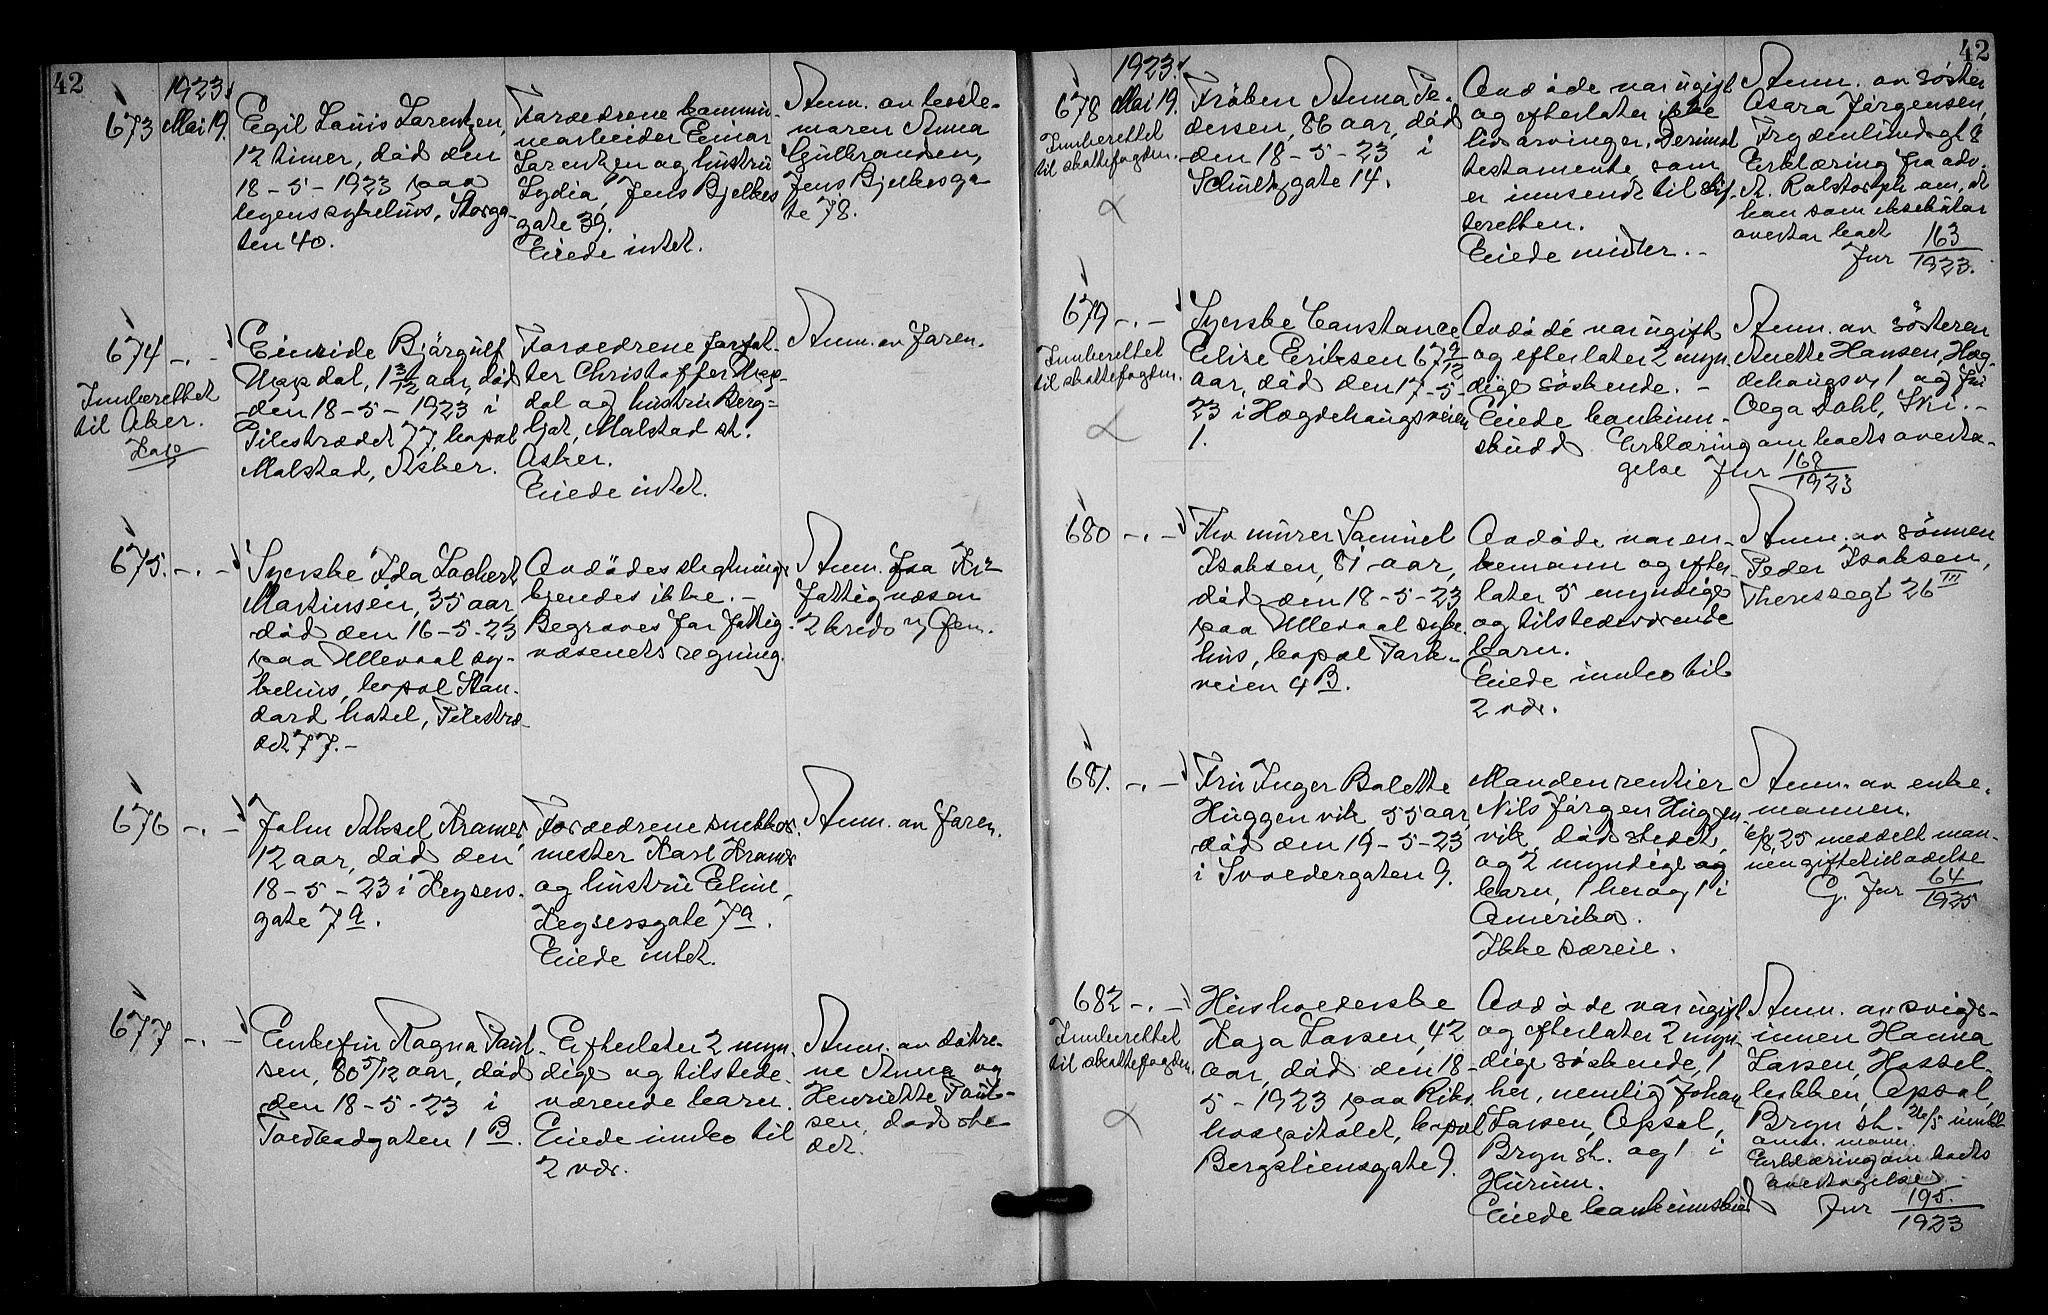 42
1923.
673 Mai 19.
Egil Louis Larentzen,
12 timer, død den
18-5-1923 paa
legenssykehus, Storga-
ten 40.
Forældrene kommu-
nearbeider Einar
Larentzen og hustru
Lydia, Jens Bjelkes
gate 39.
Eiede intet.
Anm. av beste-
moren Anna
Gulbrandsen,
Jens Bjelkesga-
te 78.
674 -.-
Innberettet
til Aker.
Einride Bjørgulf
dal, 1 3/12 aar, død
den 18-5-1923 i
Pilestrædet 77, bopæl
Malstad, Asker.
Forældrene forfat-
ter Christoffer
dal og hustru Berg-
ljot, Malstad st.
Asker.
Eiede intet.
Anm. av faren.
675. -.-
Syerske Ida Lochert
Martinsen, 35 aar,
død den 16-5-23
paa Ullevaal sy-
kehus, bopæl Stan-
dard hotel, Pilestræ-
det 77.-
Avdødes slegtninge
kjendes ikke.-
Begraves for fattig-
væsenets regning.
Anm. fra Kr.
fattigvæsen
676 -.-
John Aksel Kramer,
12 aar, død den
18-5-23 i Keysers-
gate 7a.
Forældrene snekker-
mester Karl Kramer
og hustru Eline,
Keysersgate 7a.
Eiede intet.
Anm. av faren.
677 -.-
Enkefru Ragna Paul-
sen, 80 5/12 aar, død
den 18-5-23 i
Toldbodgaten 1 B.
Efterlater 2 myn-
dige og tilstede-
værende barn.
Eiede innbo til
2 vær.
Anm. av døtre-
ne Anna og
Henriette Paul-
sen, død ste-
det.
42
1923.
678 Mai 19.
Innberettet
til skattefogden.
Frøken Anna Pe-
dersen, 86 aar, død
den 18-5-23 i
Schultzgate 14.
Avdøde var ugift
og efterlater ikke
livsarvinger. Derimot
testamente, som
er innsendt til skif-
teretten.
Eiede midler.-
Anm. av søster
Asara Jørgensen,
Frydenlundgt 8
Erklæring fra adv.
A. Rolstorph om, at
han som eksekutor
overtar boet
Jnr 163/1923.
679 -.-
Innberettet
til skattefogden.
Syerske Constance
Elise Eriksen 67 9/12
aar, død den 17-5-
23 i Hægdehaugsveien
1.
Avdøde var ugift
og efterlater 2 myn-
dige søskende.-
Eiede bankinn-
skudd
Anm. av søsteren
Anette Hansen, Hæg-
dehaugsv. 1 og fru
Olga Dahl, Ski.-
Erklæring om boets overta-
gelse Jnr 168/1923
680 -.-
Fhv murer Samuel
Isaksen, 81 aar,
død den 18-5-23
paa Ullevaal syke-
hus, bopæl Park-
veien 4 B.
Avdøde var en-
kemann og efter-
later 5 myndige
og tilstedeværende
barn.
Eiede innbo til
2 vær.
Anm. av sønnen
Peder Isaksen,
Theresegt 26 III
681. -.-
Fru Inger Bolette
Huggenvik 55 aar,
død den 19-5-23
i Tvedergaten 9.
Manden rentier
Nils Jørgen Huggen-
vik, død stedet,
og 2 myndige og
barn, 1 her og 1 i
Amerika.
Ikke særeie.
Anm. av enke-
mannen.
/8 25 meddelt man-
nen giftetilladelse
G. Jnr 64/1925
682 -.-
Innberettet
til skattefogden.
Husholderske
Kaja Larsen, 42
aar, død den 18-
5-1923 paa Riks-
hospitalet, bopæl
Bergsliensgate 9.
Avdøde var ugift
og efterlater 2 myn-
dige søskende, 1
her, nemlig Johan
Larsen, Opsal,
Bryn st. og 1 i
Hurum.
Eiede bankinnskud
Anm. av sviger-
innen Hanna
Larsen, Hassel-
bakken, Opsal,
Bryn st. 26/5 innk
anm. mann.
Erklæring om boets
overtagelse
Jnr 195/1923